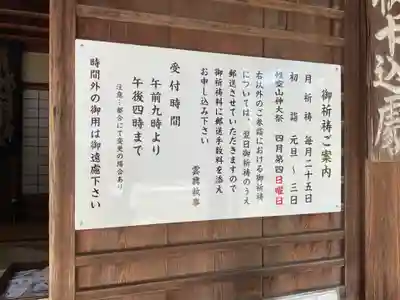 御祈祷ご案内
月祈祷 毎月二十五日
初詣 元旦～三日
秋葉山神大祭 四月第四日曜日
右以外のご参詣における御祈祷
については、翌日御祈祷のうえ
郵送させていただきますので
御祈祷料に郵送手数料を添え
お申し込み下さい
雲興執事
受付時間
午前九時より
午後四時まで
注意…都合にて変更の場合あり
時間外の御用は御遠慮下さい